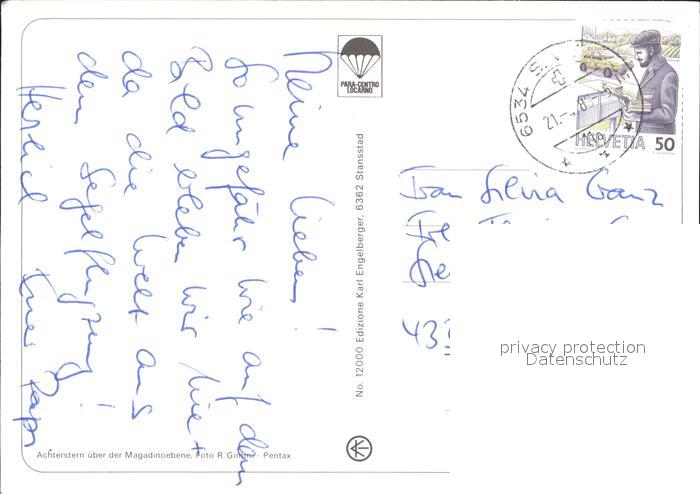 Meine Lieben!
So ungefähr wie auf dem
Bild erleben wir hier
da die Welt aus
dem Segelflugzeug!
Herzlich Euer Papi
PARA-CENTRO
LOCARNO
No. 12000 Edizione Karl Engelberger, 6362 Stansstad
Achterstern über der Magadinoebene, Foto R. Gimmi · Pentax
6534 S
21.
HELVETIA 50
Frau Silvia Ganz
privacy protection
Datenschutz